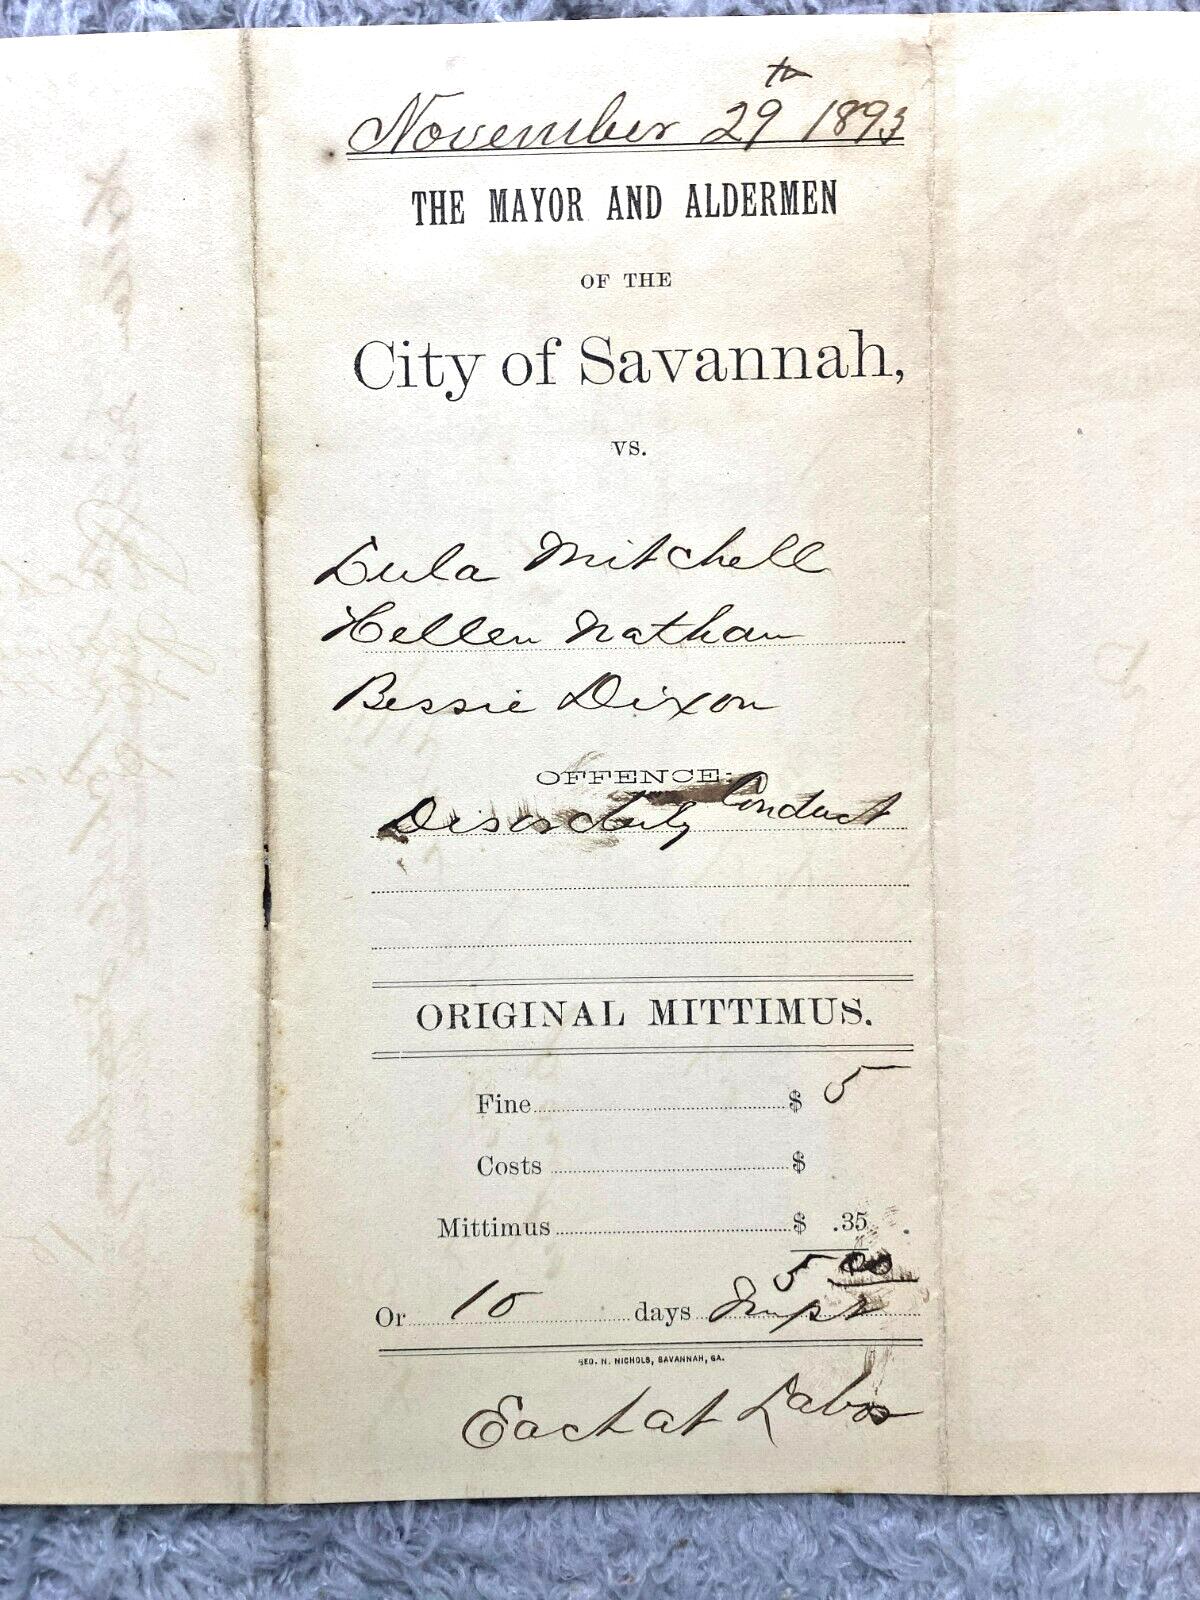 November 29th 1893
THE MAYOR AND ALDERMEN
OF THE
City of Savannah,
VS.
Lula Mitchell
Hellen Nathan
Bessie Dixon
OFFENCE:
Disorderly Conduct
ORIGINAL MITTIMUS.
Fine $ 5
Costs $
Mittimus $ .35
5 00
Or 10 days Impr
GEO. N. NICHOLS, SAVANNAH, GA.
Each at Labor